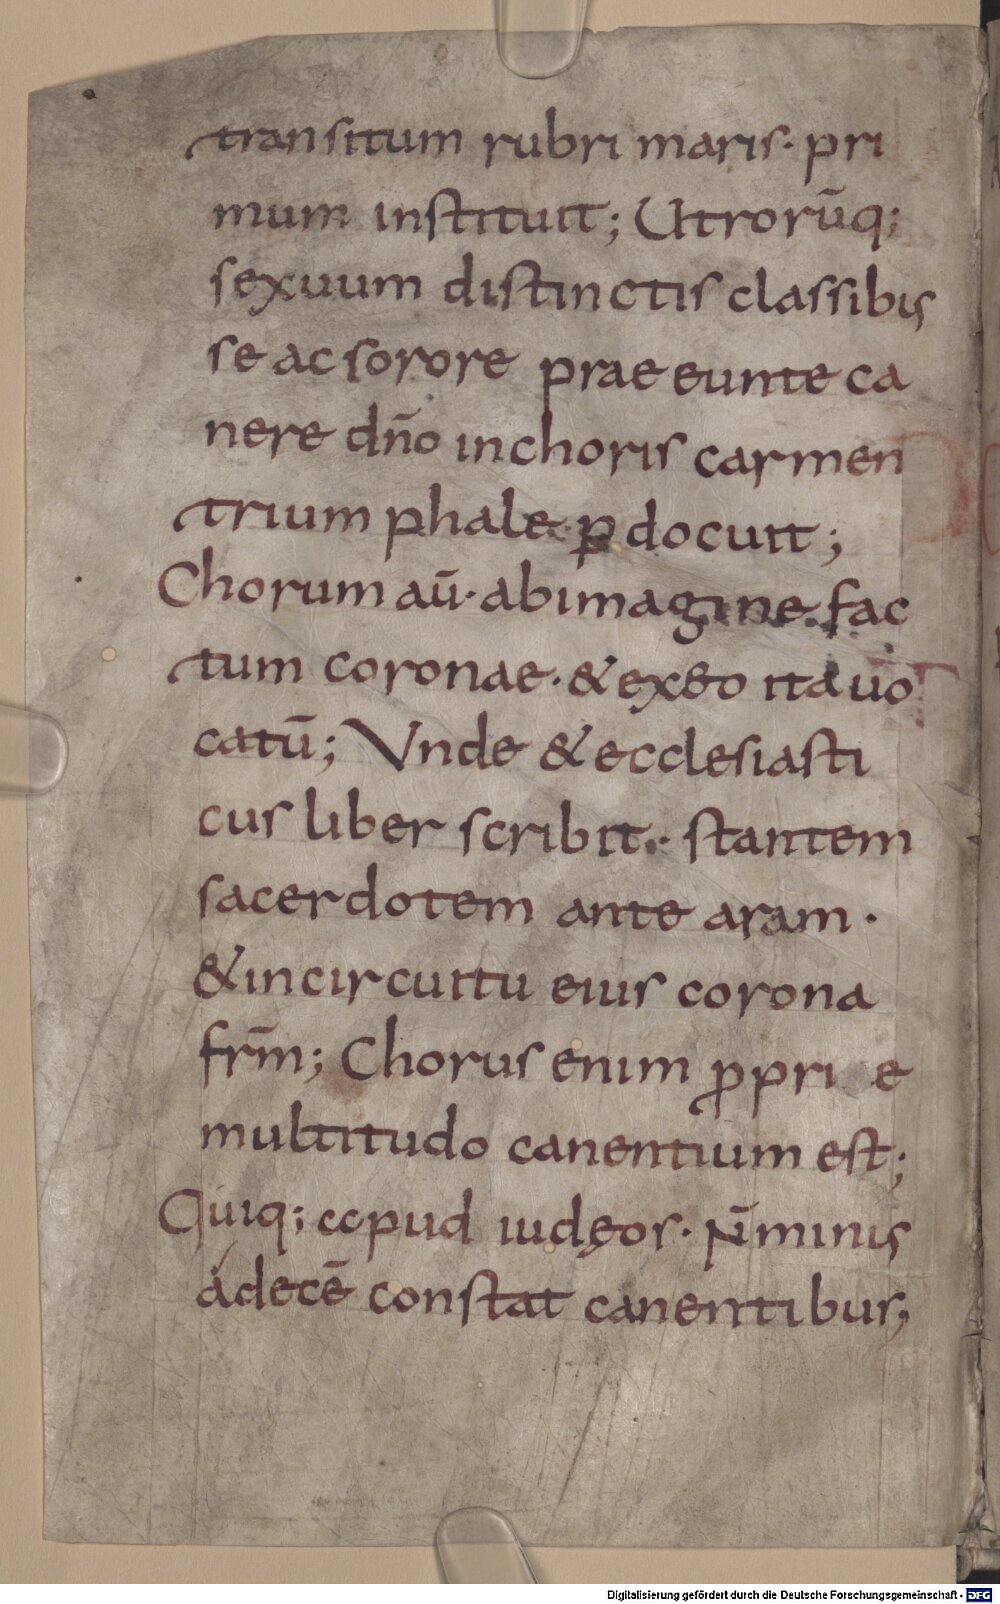 transitum rubri maris· pri
mum instituit; Utrorūq;
sexuum distinctis classibus
se ac sorore prae eunte ca
nere dño in choris carmen
trium phale ꝑ docuit;
Chorum aū· ab imagine fac
tum coronae· & ex eo ita uo
catū; Vnde & ecclesiasti
cus liber scribit· stantem
sacerdotem ante aram·
& in circuitu eius corona
frm̄; Chorus enim ꝓpri e
multitudo canentium est;
Quiq; apud iudęos· N̄ minus
a decē constat canentibus;
Digitalisierung gefördert durch die Deutsche Forschungsgemeinschaft - DFG